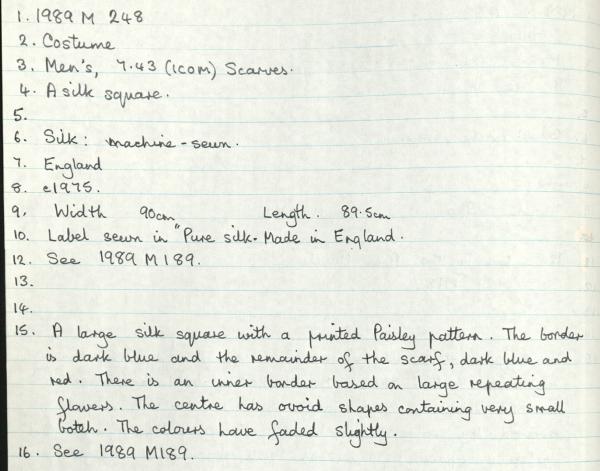 1. 1989 M 248
2. Costume
3. Men's, 7.43 (ICOM) Scarves.
4. A silk square.
5.
6. Silk: machine-sewn.
7. England
8. c1975.
9. Width 90cm Length. 89.5cm
10. Label sewn in "Pure silk. Made in England.
12. See 1989 M189.
13.
14.
15. A large silk square with a printed Paisley pattern. The border
is dark blue and the remainder of the scarf, dark blue and
red. There is an inner border based on large repeating
flowers. The centre has ovoid shapes containing very small
boteh. The colours have faded slightly.
16. See 1989 M189.